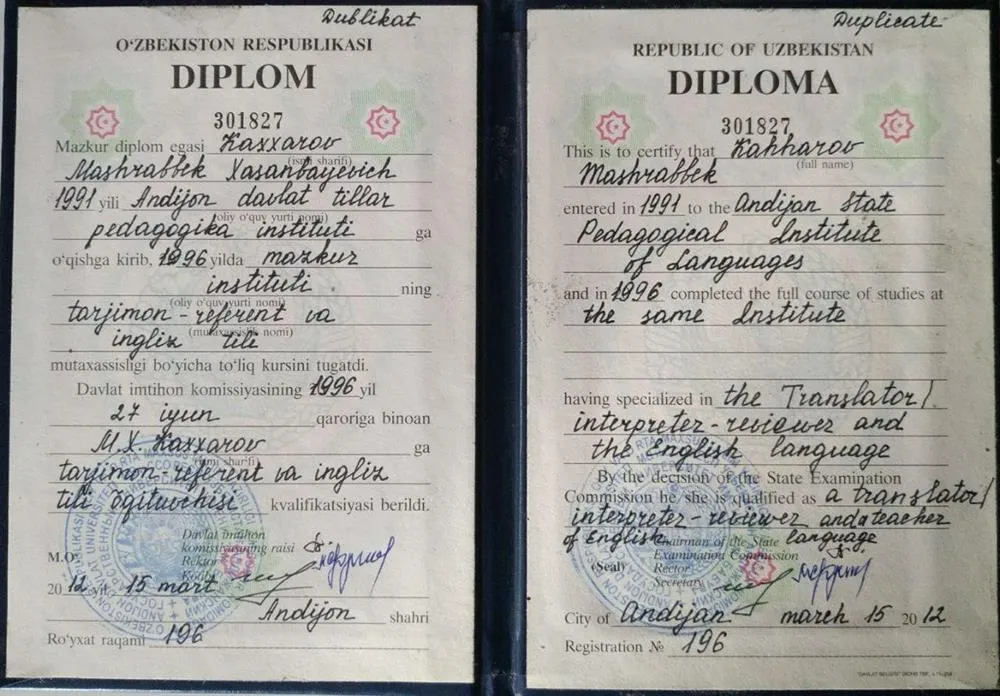 Dublikat
O‘ZBEKISTON RESPUBLIKASI
DIPLOM
301827
Mazkur diplom egasi Kaxxarov
(ismi sharifi)
Mashrabbek Xasanbayevich
1991 yili Andijon davlat tillar
(oliy o‘quv yurti nomi)
pedagogika instituti ga
o‘qishga kirib, 1996 yilda mazkur
instituti ning
(oliy o‘quv yurti nomi)
tarjimon-referent va
(mutaxassislik nomi)
ingliz tili
mutaxassisligi bo‘yicha to‘liq kursini tugatdi.
Davlat imtihon komissiyasining 1996 yil
27 iyun qaroriga binoan
M.X. Kaxxarov ga
(ismi sharifi)
tarjimon-referent va ingliz
tili o‘gituvchisi kvalifikatsiyasi berildi.
Davlat imtihon
komissiyasining raisi
M.O‘. Rektor
Kotib
2012 yil 15 mart
Andijon shahri
Ro‘yxat raqami 196
Duplicate
REPUBLIC OF UZBEKISTAN
DIPLOMA
301827
This is to certify that Kahharov
(full name)
Mashrabbek
entered in 1991 to the Andijan State
Pedagogical Institute
of Languages
and in 1996 completed the full course of studies at
the same Institute
having specialized in the Translator/
interpreter-reviewer and
the English language
By the decision of the State Examination
Commission he she is qualified as a translator/
interpreter-reviewer and a teacher
of English language
Chairman of the State
Examination Commission
(Seal) Rector
Secretary
City of Andijan march 15 2012
Registration № 196